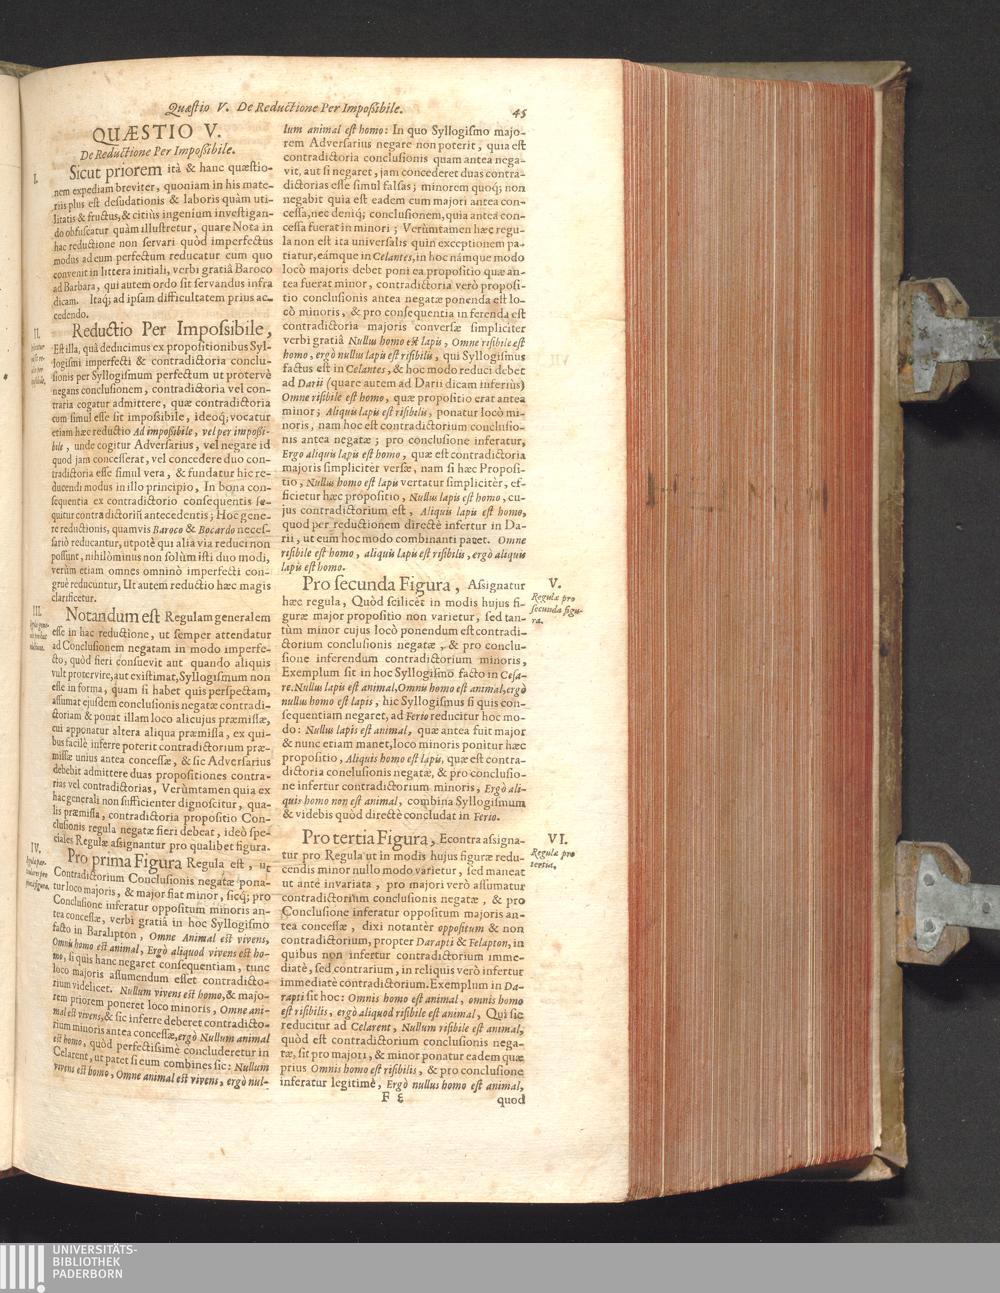 Quæſtio V. De Reductione Per Impoßibile.
45
QUÆSTIO V.
De Reductione Per Impoßibile.
I.
Sicut priorem ità & hanc quæſtio-
nem expediam breviter, quoniam in his mate-
riis plus eſt deſudationis & laboris quàm uti-
litatis & fructus, & citiùs ingenium inveſtigan-
do obfuſcatur quàm illuſtretur, quare Nota in
hac reductione non ſervari quòd imperfectus
modus ad eum perfectum reducatur cum quo
convenit in littera initiali, verbi gratiâ Baroco
ad Barbara, qui autem ordo ſit ſervandus infra
dicam. Itaq; ad ipſam difficultatem prius ac-
cedendo.
II.
Reductio Per Impoſsibile,
Eſt illa, quâ deducimus ex propoſitionibus Syl-
logiſmi imperfecti & contradictoria conclu-
ſionis per Syllogiſmum perfectum ut protervè
negans concluſionem, contradictoria vel con-
traria cogatur admittere, quæ contradictoria
cum ſimul eſſe ſit impoſsibile, ideoq; vocatur
etiam hæc reductio Ad impoßibile, vel per impoßi-
bile, unde cogitur Adverſarius, vel negare id
quod jam conceſſerat, vel concedere duo con-
tradictoria eſſe ſimul vera, & fundatur hic re-
ducendi modus in illo principio, In bona con-
ſequentia ex contradictorio conſequentis ſe-
quitur contradictoriũ antecedentis; Hoc gene-
re reductionis, quamvis Baroco & Bocardo neceſ-
ſariò reducantur, utpotè qui alia via reduci non
poſſunt, nihilòminus non ſolùm iſti duo modi,
verùm etiam omnes omninò imperfecti con-
gruè reducuntur, Ut autem reductio hæc magis
clarificetur.
III.
Notandum eſt Regulam generalem
eſſe in hac reductione, ut ſemper attendatur
ad Concluſionem negatam in modo imperfe-
cto, quòd fieri conſuevit aut quando aliquis
vult protervire, aut exiſtimat, Syllogiſmum non
eſſe in forma, quam ſi habet quis perſpectam,
aſſumat ejuſdem concluſionis negatæ contradi-
ctoriam & ponat illam loco alicujus præmiſſæ,
cui apponatur altera aliqua præmiſſa, ex qui-
bus facilè inferre poterit contradictorium præ-
miſſæ unius antea conceſſæ, & ſic Adverſarius
debebit admittere duas propoſitiones contra-
rias vel contradictorias, Verùmtamen quia ex
hac generali non ſufficienter dignoſcitur, qua-
lis præmiſſa, contradictoria propoſitio Con-
cluſionis regula negatæ fieri debeat, ideò ſpe-
ciales Regulæ aſsignantur pro qualibet figura.
IV.
Pro prima Figura Regula eſt, ut
Contradictorium Concluſionis negatæ pona-
tur loco majoris, & major fiat minor, ſicq; pro
Concluſione inferatur oppoſitum minoris an-
tea conceſſæ, verbi gratiâ in hoc Syllogiſmo
facto in Baralipton, Omne Animal eſt vivens,
Omnis homo eſt animal, Ergò aliquod vivens eſt ho-
mo, ſi quis hanc negaret conſequentiam, tunc
loco majoris aſſumendum eſſet contradicto-
rium videlicet. Nullum vivens eſt homo, & majo-
rem priorem poneret loco minoris, Omne ani-
mal eſt vivens, & ſic inferre deberet contradicto-
rium minoris antea conceſſæ, ergò Nullum animal
eſt homo, quòd perfectiſsimè concluderetur in
Celarent, ut patet ſi eum combines ſic: Nullum
vivens eſt homo, Omne animal eſt vivens, ergò nul-
lum animal eſt homo: In quo Syllogiſmo majo-
rem Adverſarius negare non poterit, quia eſt
contradictoria concluſionis quam antea nega-
vit, aut ſi negaret, jam concederet duas contra-
dictorias eſſe ſimul falſas; minorem quoq; non
negabit quia eſt eadem cum majori antea con-
ceſſa, nec deniq; concluſionem, quia antea con-
ceſſa fuerat in minori; Verùmtamen hæc regu-
la non eſt ita univerſalis quin exceptionem pa-
tiatur, eámque in Celantes, in hoc námque modo
locò majoris debet poni ea propoſitio quæ an-
tea fuerat minor, contradictoria verò propoſi-
tio concluſionis antea negatæ ponenda eſt lo-
cò minoris, & pro conſequentia inferenda eſt
contradictoria majoris converſæ ſimpliciter
verbi gratiâ Nullus homo eſt lapis, Omne riſibile eſt
homo, ergò nullus lapis eſt riſibilis, qui Syllogiſmus
factus eſt in Celantes, & hoc modo reduci debet
ad Darii (quare autem ad Darii dicam inferiùs)
Omne riſibile eſt homo, quæ propoſitio erat antea
minor; Aliquis lapis eſt riſibilis, ponatur locò mi-
noris, nam hoc eſt contradictorium concluſio-
nis antea negatæ; pro concluſione inferatur,
Ergo aliquis lapis eſt homo, quæ eſt contradictoria
majoris ſimplicitèr verſæ, nam ſi hæc Propoſi-
tio, Nullus homo eſt lapis vertatur ſimplicitèr, ef-
ficietur hæc propoſitio, Nullus lapis eſt homo, cu-
jus contradictorium eſt, Aliquis lapis eſt homo,
quod per reductionem directè infertur in Da-
rii, ut eum hoc modo combinanti patet. Omne
riſibile eſt homo, aliquis lapis eſt riſibilis, ergò aliquis
lapis eſt homo.
Pro ſecunda Figura, Aſsignatur
hæc regula, Quòd ſcilicèt in modis hujus fi-
guræ major propoſitio non varietur, ſed tan-
tùm minor cujus locò ponendum eſt contradi-
ctorium concluſionis negatæ, & pro conclu-
ſione inferendum contradictorium minoris,
Exemplum ſit in hoc Syllogiſmo facto in Ceſa-
re. Nullus lapis eſt animal, Omnis homo eſt animal, ergò
nullus homo eſt lapis, hic Syllogiſmus ſi quis con-
ſequentiam negaret, ad Ferio reducitur hoc mo-
do: Nullus lapis eſt animal, quæ antea fuit major
& nunc etiam manet, loco minoris ponitur hæc
propoſitio, Aliquis homo eſt lapis, quæ eſt contra-
dictoria concluſionis negatæ, & pro concluſio-
ne infertur contradictorium minoris, Ergò ali-
quis homo non eſt animal, combina Syllogiſmum
& videbis quòd directè concludat in Ferio.
V.
Regulæ pro
ſecunda figu-
ra.
Pro tertia Figura, Econtra aſsigna-
tur pro Regula ut in modis hujus figuræ redu-
cendis minor nullo modo varietur, ſed maneat
ut ante invariata, pro majori verò aſſumatur
contradictorium concluſionis negatæ, & pro
Concluſione inferatur oppoſitum majoris an-
tea conceſſæ, dixi notantèr oppoſitum & non
contradictorium, propter Darapti & Felapton, in
quibus non infertur contradictorium imme-
diatè, ſed contrarium, in reliquis verò infertur
immediatè contradictorium. Exemplum in Da-
rapti ſit hoc: Omnis homo eſt animal, omnis homo
eſt riſibilis, ergò aliquod riſibile eſt animal, Qui ſic
reducitur ad Celarent, Nullum riſibile eſt animal,
quòd eſt contradictorium concluſionis nega-
tæ, ſit pro majori, & minor ponatur eadem quæ
prius Omnis homo eſt riſibilis, & pro concluſione
inferatur legitimè, Ergò nullus homo eſt animal,
VI.
Regulæ pro
tertia.
F
quod
UNIVERSITÄTS-
BIBLIOTHEK
PADERBORN